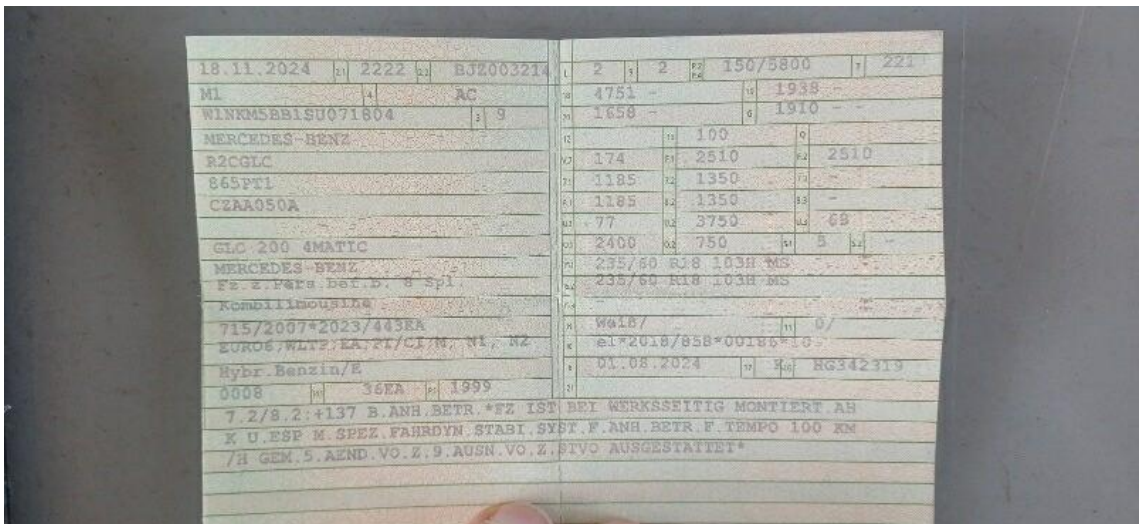 18.11.2024 2.1 2222 2.2 BJZ003214
M1 4 AC
W1NKM5BB1SU071804 3 9
MERCEDES-BENZ
R2CGLC
865PT1
CZAA050A
GLC 200 4MATIC
MERCEDES-BENZ
Fz.z.Pers.bef.b. 8 Spl.
Kombilimousine
715/2007*2023/443EA
EURO6;WLTP;EA;PI/CI;M, N1, N2
Hybr.Benzin/E
0008 36EA 1999
L 2 9 2 P.2 P.4 150/5800 T 221
18 4751 - 19 1938 -
20 1658 - G 1910 - -
12 13 100 Q
V.7 174 F.1 2510 F.2 2510
7.1 1185 7.2 1350 7.3 -
8.1 1185 8.2 1350 8.3 -
U.1 77 U.2 3750 U.3 68
O.1 2400 O.2 750 S.1 5 S.2 -
235/60 R18 103H MS
235/60 R18 103H MS
-
R Weiß/ 11 0/
K e1*2018/858*00186*10
6 01.08.2024 17 K 16 HG342319
21
7.2/8.2:+137 B.ANH.BETR.*FZ IST BEI WERKSSEITIG MONTIERT.AH
K U.ESP M.SPEZ.FAHRDYN.STABI.SYST.F.ANH.BETR.F.TEMPO 100 KM
/H GEM.5.AEND.VO.Z.9.AUSN.VO.Z.STVO AUSGESTATTET*